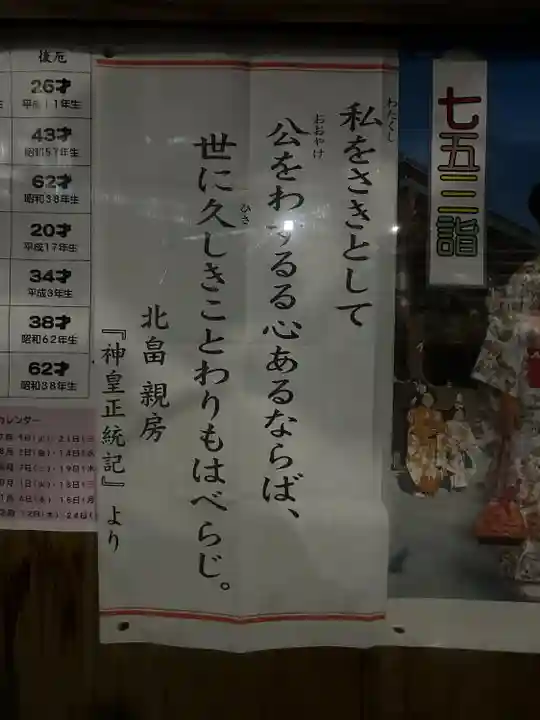 私をさきとして
わたくし
公をわするる心あるならば、
おおやけ
世に久しきことわりもはべらじ。
ひさ
北畠 親房
『神皇正統記』より
七五三詣
後厄
26才
平成11年生
43才
昭和57年生
62才
昭和38年生
20才
平成17年生
34才
平成3年生
38才
昭和62年生
62才
昭和38年生
カレンダー